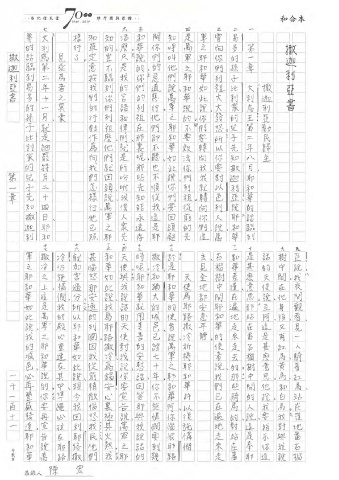 和合本
撒迦利亞書
撒迦利亞勸民歸主
第一章 大利烏王第二年八月耶和華的話臨到
易多的孫子比利家的兒子先知撒迦利亞說耶和華
曾向你們列祖大大發怒所以你要對以色列人說萬
軍之耶和華如此說你們要轉向我我就轉向你們這
是萬軍之耶和華說的不要效法你們列祖從前的先
知呼叫他們說萬軍之耶和華如此說你們要回頭離
開你們的惡道惡行他們卻不聽也不順從我這是耶
和華說的你們的列祖在哪裏呢那些先知能永遠存
活麼然而我的言語和律例就是所吩咐我僕人眾先
知的豈不臨到你們列祖麼他們就回頭說萬軍之耶
和華定意按我們的行動作為向我們怎樣行他已照
樣行了
大利烏第二年十一月就是細罷特月二十四日耶和
華的話臨到易多的孫子比利家的兒子先知撒迦利
撒迦利亞書 第一章
亞說我夜間觀看見一人騎着紅馬站在窪地番石榴
樹中間在他身後又有紅馬黃馬和白馬我對與我說
話的天使說主阿這是甚麼意思他說我要指示你這
是甚麼意思那站在番石榴樹中間的人說這是奉耶
和華差遣在遍地走來走去的那些騎馬的對站在番
石榴樹中間耶和華的使者說我們已在遍地走來走
去見全地都安息平靜
於是耶和華的使者說萬軍之耶和華阿你惱恨耶路
撒冷和猶大的城邑已經七十年你不施憐憫要到幾
時呢耶和華就用美善的安慰話回答那與我說話的
天使與我說話的天使對我說你要宣告說萬軍之耶
和華如此說我為耶路撒冷為錫安心裏極其火熱我
甚惱怒那安逸的列國因我從前稍微惱怒我民他們
就加害過分所以耶和華如此說現今我回到耶路撒
冷仍施憐憫我的殿必重建在其中準繩必拉在耶路
撒冷之上這是萬軍之耶和華說的你要再宣告說萬
軍之耶和華如此說我的城邑必再豐盛發達耶和華